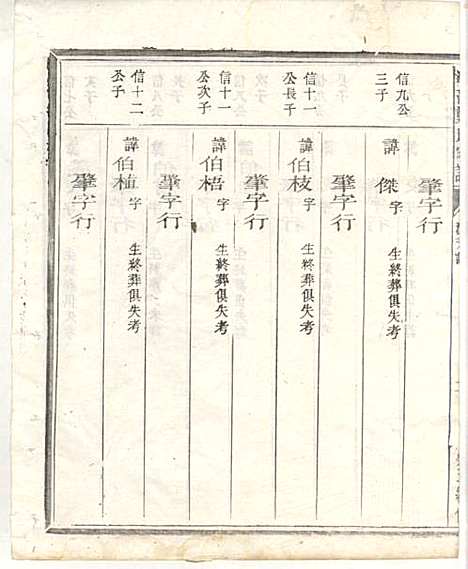 肇字行
信九公
三子
諱傑字
生終葬俱失考
肇字行
信十一
公長子
諱伯枝字
生終葬俱失考
肇字行
信十一
公次子
諱伯梧字
生終葬俱失考
肇字行
信十二
公子
諱伯植字
生終葬俱失考
肇字行